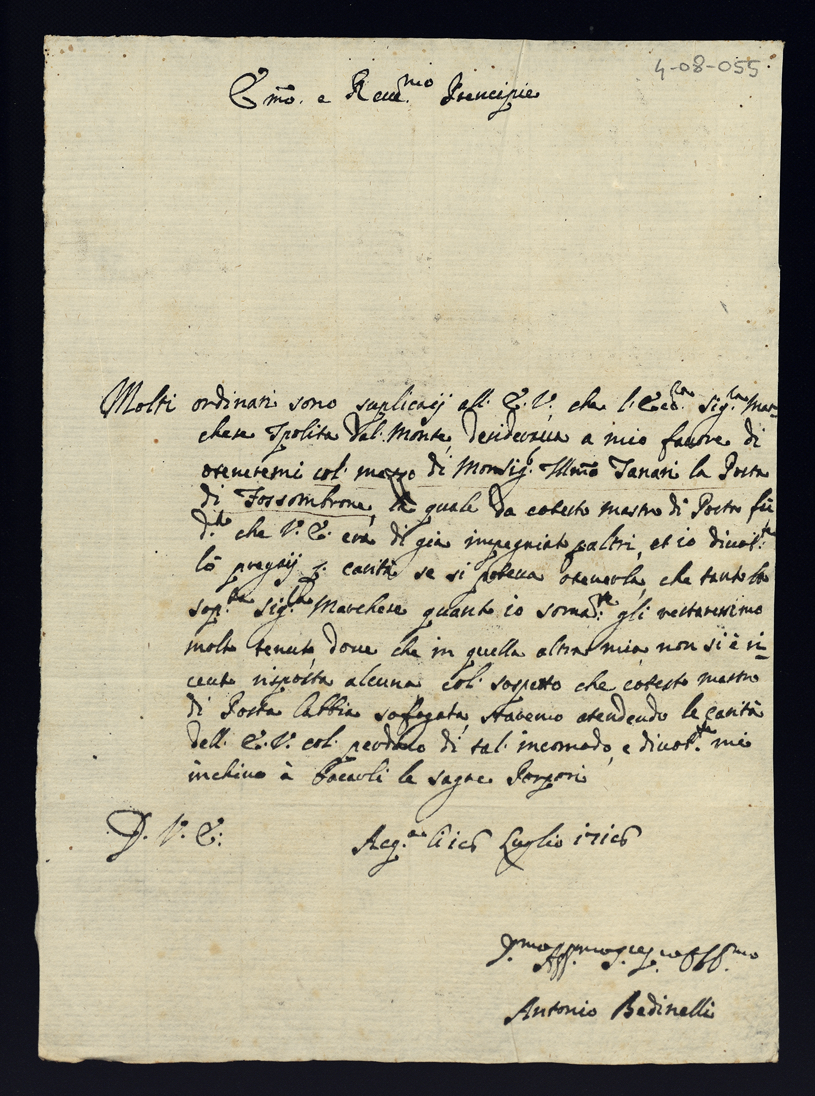 4-08-055
Emo. e Reue.mo Prencipe
Molti ordinari sono suplicaij all: E. V. che l: Ecc.za Sig.ra Mar-
chese Ipolita dal: Monte, desiderava a mio favore di
otenetemi col: mezzo di Monsig.r Illmo Tanari la Posta
di Fossombrone, la quale da cotesto mastro di Posta fù
d.to che V. E. era di già impegniato p altri, et io divot.te
lo pregaij p. carità se si poteva otenerla, che tanto la
sop.ta Sig.ra Marchese quanto io soma.te gli restaressimo
molto tenuto, dove che in quella altra mia non si è ri-
ceuto risposta alcuna col: sospetto che cotesto mastro
di Posta l'abbia sofogata, staremo atendendo le carità
dell: E. V. col: perdono di tal: incomodo, e divot.te mi
inchino à baciarli le sagre Porpori
D. V. E:
Acq.a li 16 Luglio 1716
Antonio Bedinelli